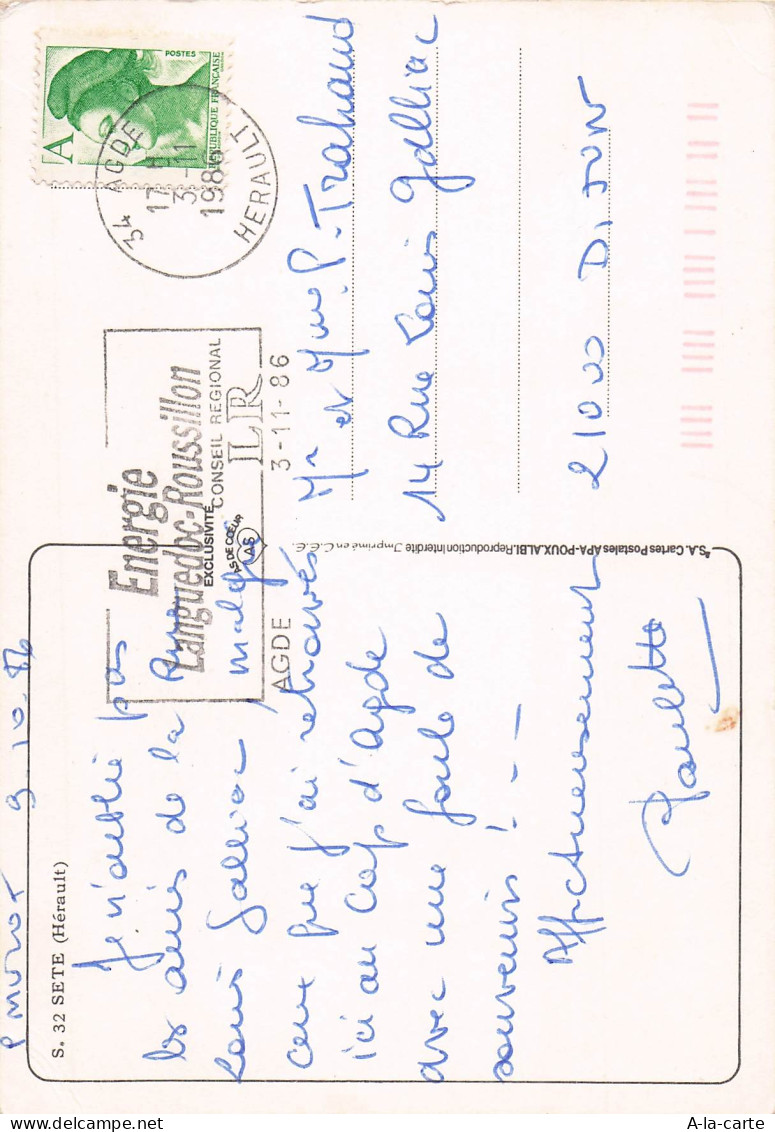 P MUROT 9.10.86
S. 32 SETE (Hérault)
Je n'oublie pas
les amis de la Rue
Louis Galliac, malgré
ceux que j'ai retrouvés
ici au Cap d'Agde
avec une foule de
souvenirs! - -
Affectueusement
Paulette
S.A. Cartes Postales APA-POUX.ALBI. Reproduction Interdite Imprimé en C.E.E.
EXCLUSIVITÉ
AS DE CŒUR
LAS
Energie
Languedoc-Roussillon
CONSEIL REGIONAL
ILR
AGDE 3-11-86
34 AGDE
17 H
3-11
1986
HERAULT
POSTES
A
REPUBLIQUE FRANÇAISE
Mr et Mme P. Trahaud
14 Rue Louis Galliac
21000 DIJON
A-la-carte